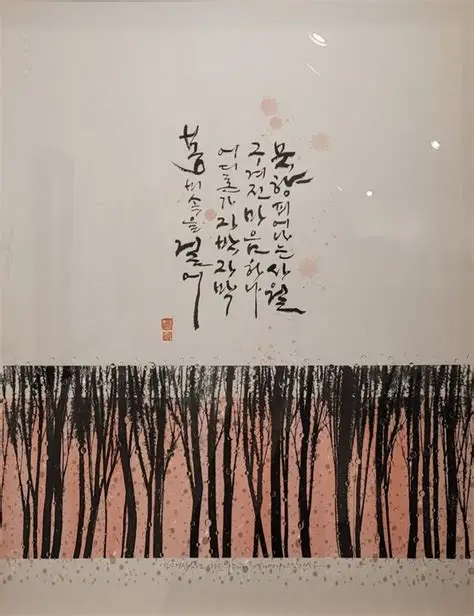 묵향 피어나는 사월
구겨진 마음 하나
어디론가 자박자박
봄비 속을 걸어